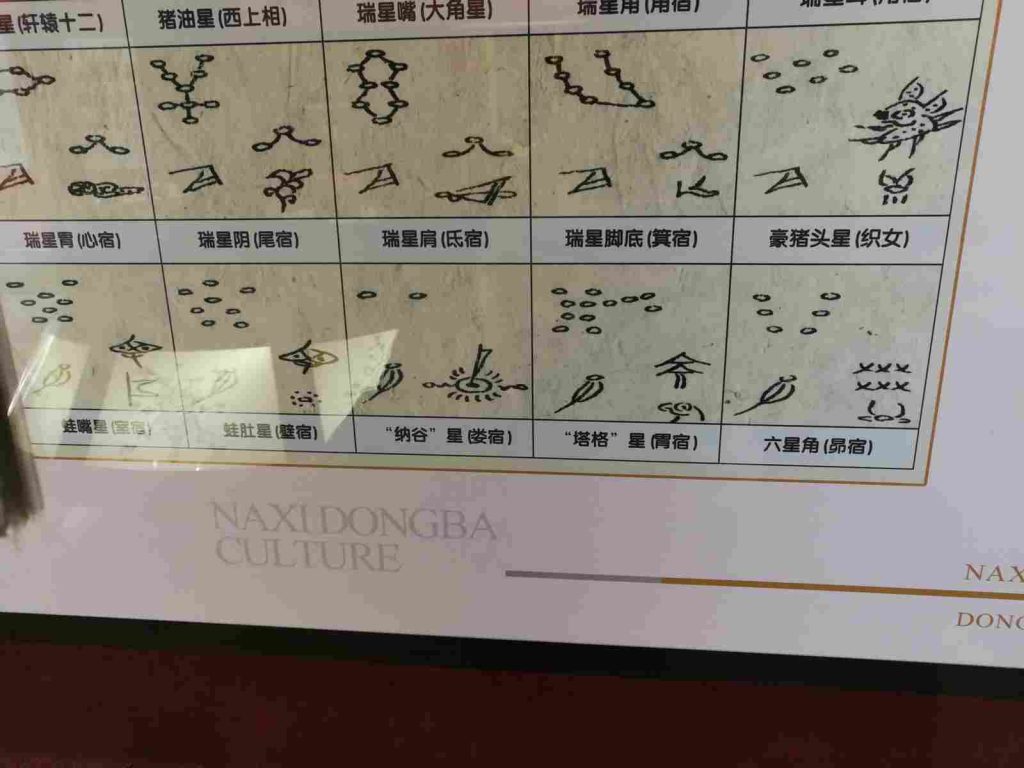 星(轩辕十二)
猪油星(西上相)
瑞星嘴(大角星)
瑞星胃(心宿)
瑞星阴(尾宿)
瑞星肩(氐宿)
瑞星脚底(箕宿)
豪猪头星(织女)
蛙嘴星(室宿)
蛙肚星(壁宿)
“纳谷”星(娄宿)
“塔格”星(胃宿)
六星角(昴宿)
NAXI DONGBA
CULTURE
NAX
DONG